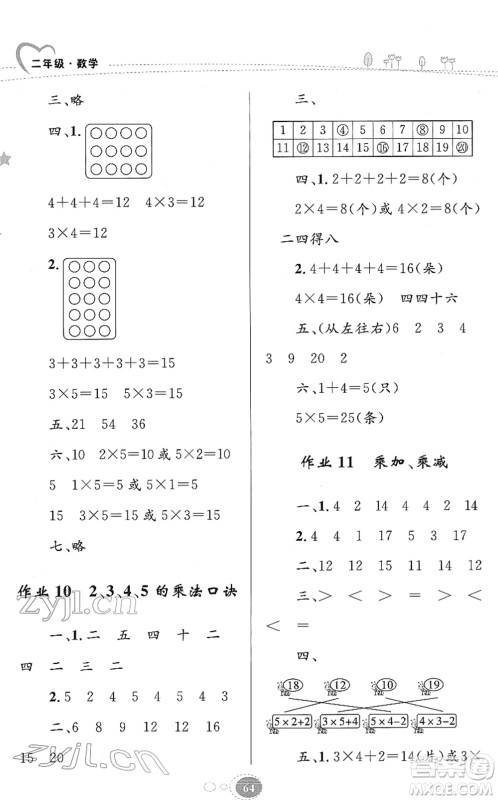 二年级·数学
三、略
四、1.
4+4+4=12 4×3=12
3×4=12
2.
3+3+3+3+3=15
3×5=15 5×3=15
五、21 54 36
六、10 2×5=10 或 5×2=10
5 1×5=5 或 5×1=5
15 3×5=15 或 5×3=15
七、略
作业 10 2、3、4、5 的乘法口诀
一、1. 二 五 四 十 二
四 二 三 二
2. 5 2 4 5 4 5
二、6 8 9 12 12 16
15 20
三、
1 2 3 ④ 5 6 7 ⑧ 9 10
11 ⑫ 13 14 15 ⑯ 17 18 19 ⑳
四、1. 2+2+2+2=8(个)
2×4=8(个)或 4×2=8(个)
二四得八
2. 4+4+4+4=16(朵)
4×4=16(朵) 四四十六
五、(从左往右)6 2 3 4
3 9 20 2
六、1+4=5(只)
5×5=25(条)
作业 11 乘加、乘减
一、1. 4 2 4 4 2 14
2. 4 14 12 5 13 17
二、7 12 17 11 14 14
三、> < > > = >
< = <
四、
18 12 10 19
5×2+2 3×5+4 5×4−2 4×3−2
五、1. 3×4+2=14(片)或 3×
64
zyjl.cn
zyjl.cn
答案圈
MXQE.COM